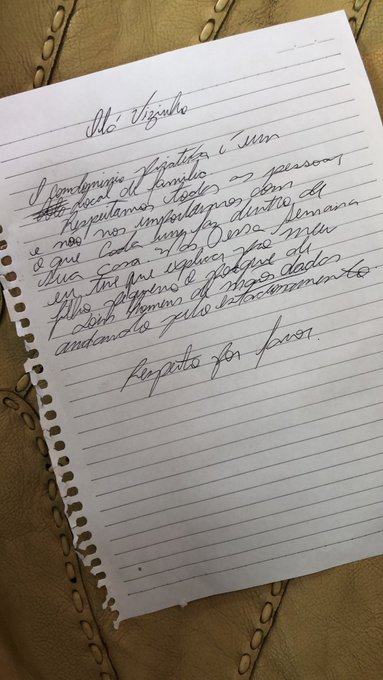 Alô Vizinho
O condomínio Piratika é um
local de família.
Respeitamos todas as pessoas
e não nos importamos com
o que cada um faz dentro de
sua casa. Mas essa semana
eu tive que explicar pro meu
filho pequeno o porque de
dois homens de mãos dadas
andando pelo estacionamento
Respeito por favor.